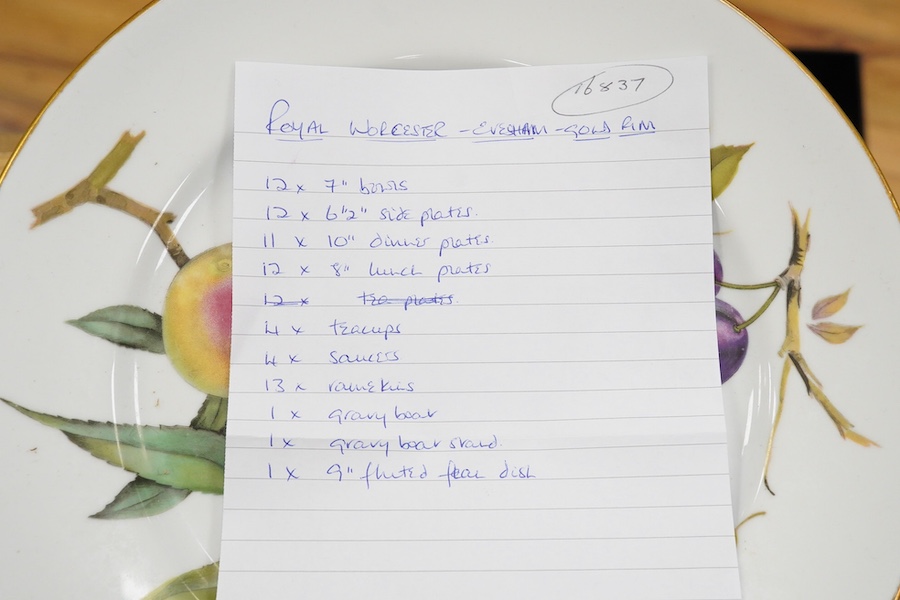 16837
ROYAL WORCESTER - EVESHAM - GOLD RIM
12 x 7" bowls
12 x 6"2" side plates.
11 x 10" dinner plates.
12 x 8" lunch plates
12 x tea plates.
4 x teacups
4 x saucers
13 x ramekins
1 x gravy boat
1 x gravy boat stand.
1 x 9" fluted flan dish